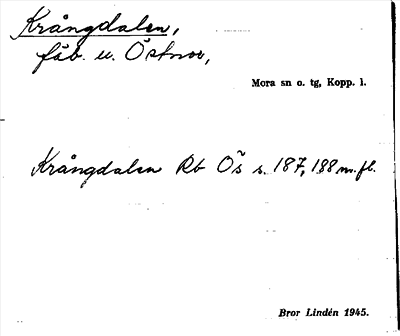 Krångdalen,
fäb. u. Östnor,
Mora sn o. tg, Kopp. l.
Krångdalen Rb Ös s. 187, 188 m. fl.
Bror Lindén 1945.